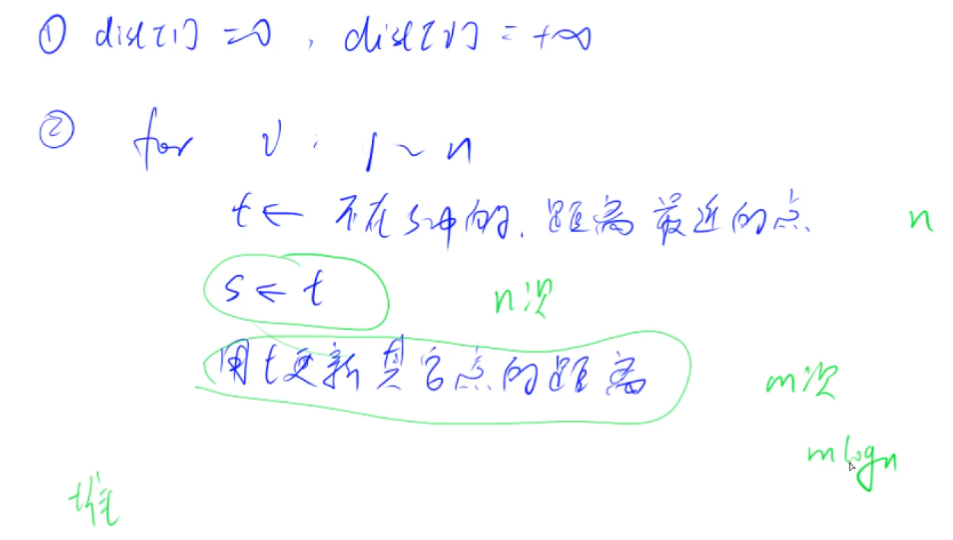 ① dist[1] = 0 , dist[v] = +∞
② for v : 1 ~ n
t ← 不在s中的. 距离最近的点. n
s ← t n次
用t更新其它点的距离 m次
mlogn
堆